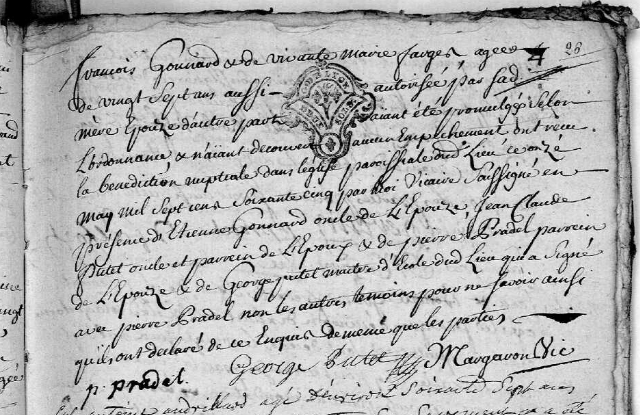 françois Gonnard & de vivante Marie farges agée 4 26
de vingt Sept ans aussi autorisée par sad
mère Epouze d'autre part aiant été promulgés Selon
L'ordonnance & n'aiant decouvert aucun Empêchement ont recu
la benediction nuptiale dans leglise paroissiale dud Lieu ce onze
may mil Sept cens Soixante cinq par moi Vicaire Soussigné en
présence d'Etienne Gonnard oncle de L'Epouze Jean Claude
Putet oncle et parrein de L'Epoux & de pierre Pradel parrein
de L'Epouze & de George putet maitre d'Ecole dud Lieu qui a Signé
avec pierre Pradel non les autres temoins pour ne savoir ainsi
qu'ils ont déclaré de ce Enquis de meme que les parties
George Putet Margaron Vic
p. pradel